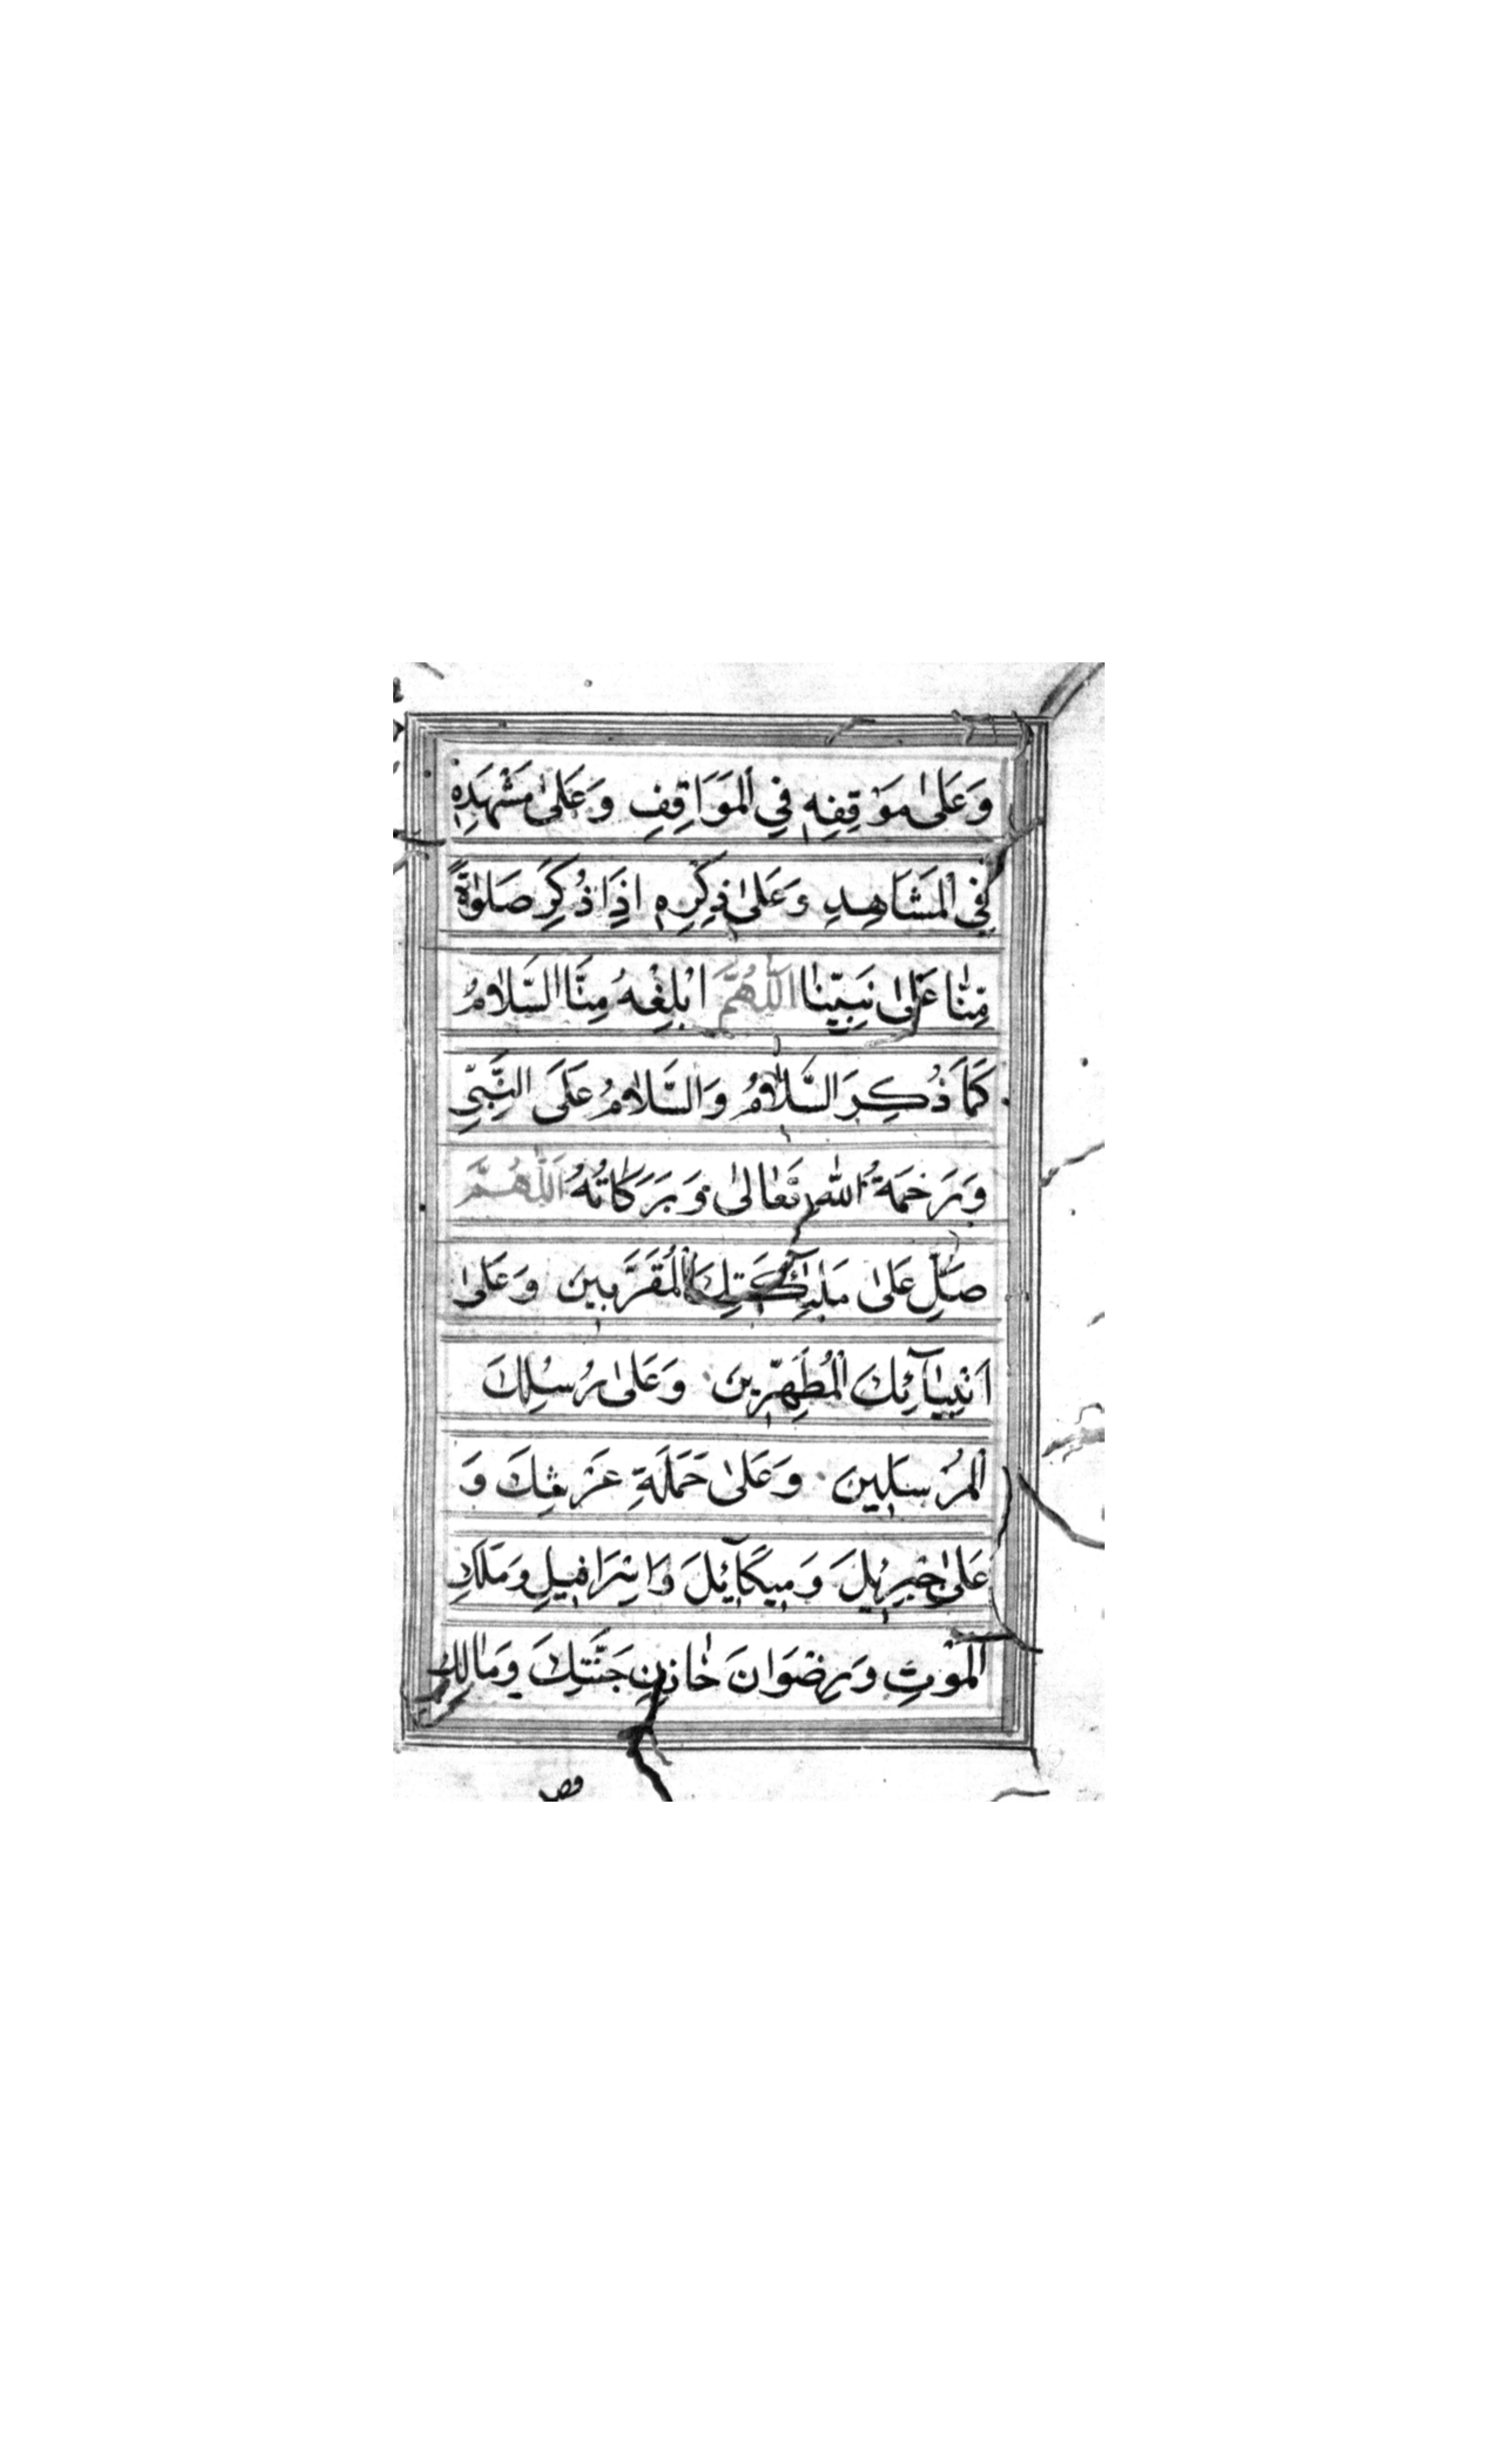 وَعَلٰى مَوْقِفِهٖ فِي الْمَوَاقِفِ وَعَلٰى مَشْهَدِهٖ
فِي الْمَشَاهِدِ وَعَلٰى ذِكْرِهٖ اِذَا ذُكِرَ صَلٰوةً
مِّنَّا عَلٰى نَبِيِّنَا اَللّٰهُمَّ اَبْلِغْهُ مِنَّا السَّلَامُ
كَمَا ذُكِرَ السَّلَامُ وَالسَّلَامُ عَلَى النَّبِيِّ
وَرَحْمَةُ اللّٰهِ تَعَالٰى وَبَرَكَاتُهُ اَللّٰهُمَّ
صَلِّ عَلٰى مَلٰٓئِكَتِكَ الْمُقَرَّبِينَ وَعَلٰى
اَنْبِيَآئِكَ الْمُطَهِّرِينَ وَعَلٰى رُسُلِكَ
الْمُرْسَلِينَ وَعَلٰى حَمَلَةِ عَرْشِكَ وَ
عَلٰى جِبْرِيْلَ وَمِيكَآئِلَ وَاِسْرَافِيلَ وَمَلَكِ
الْمَوْتِ وَرِضْوَانَ خَازِنِ جَنَّتِكَ وَمَالِكٍ